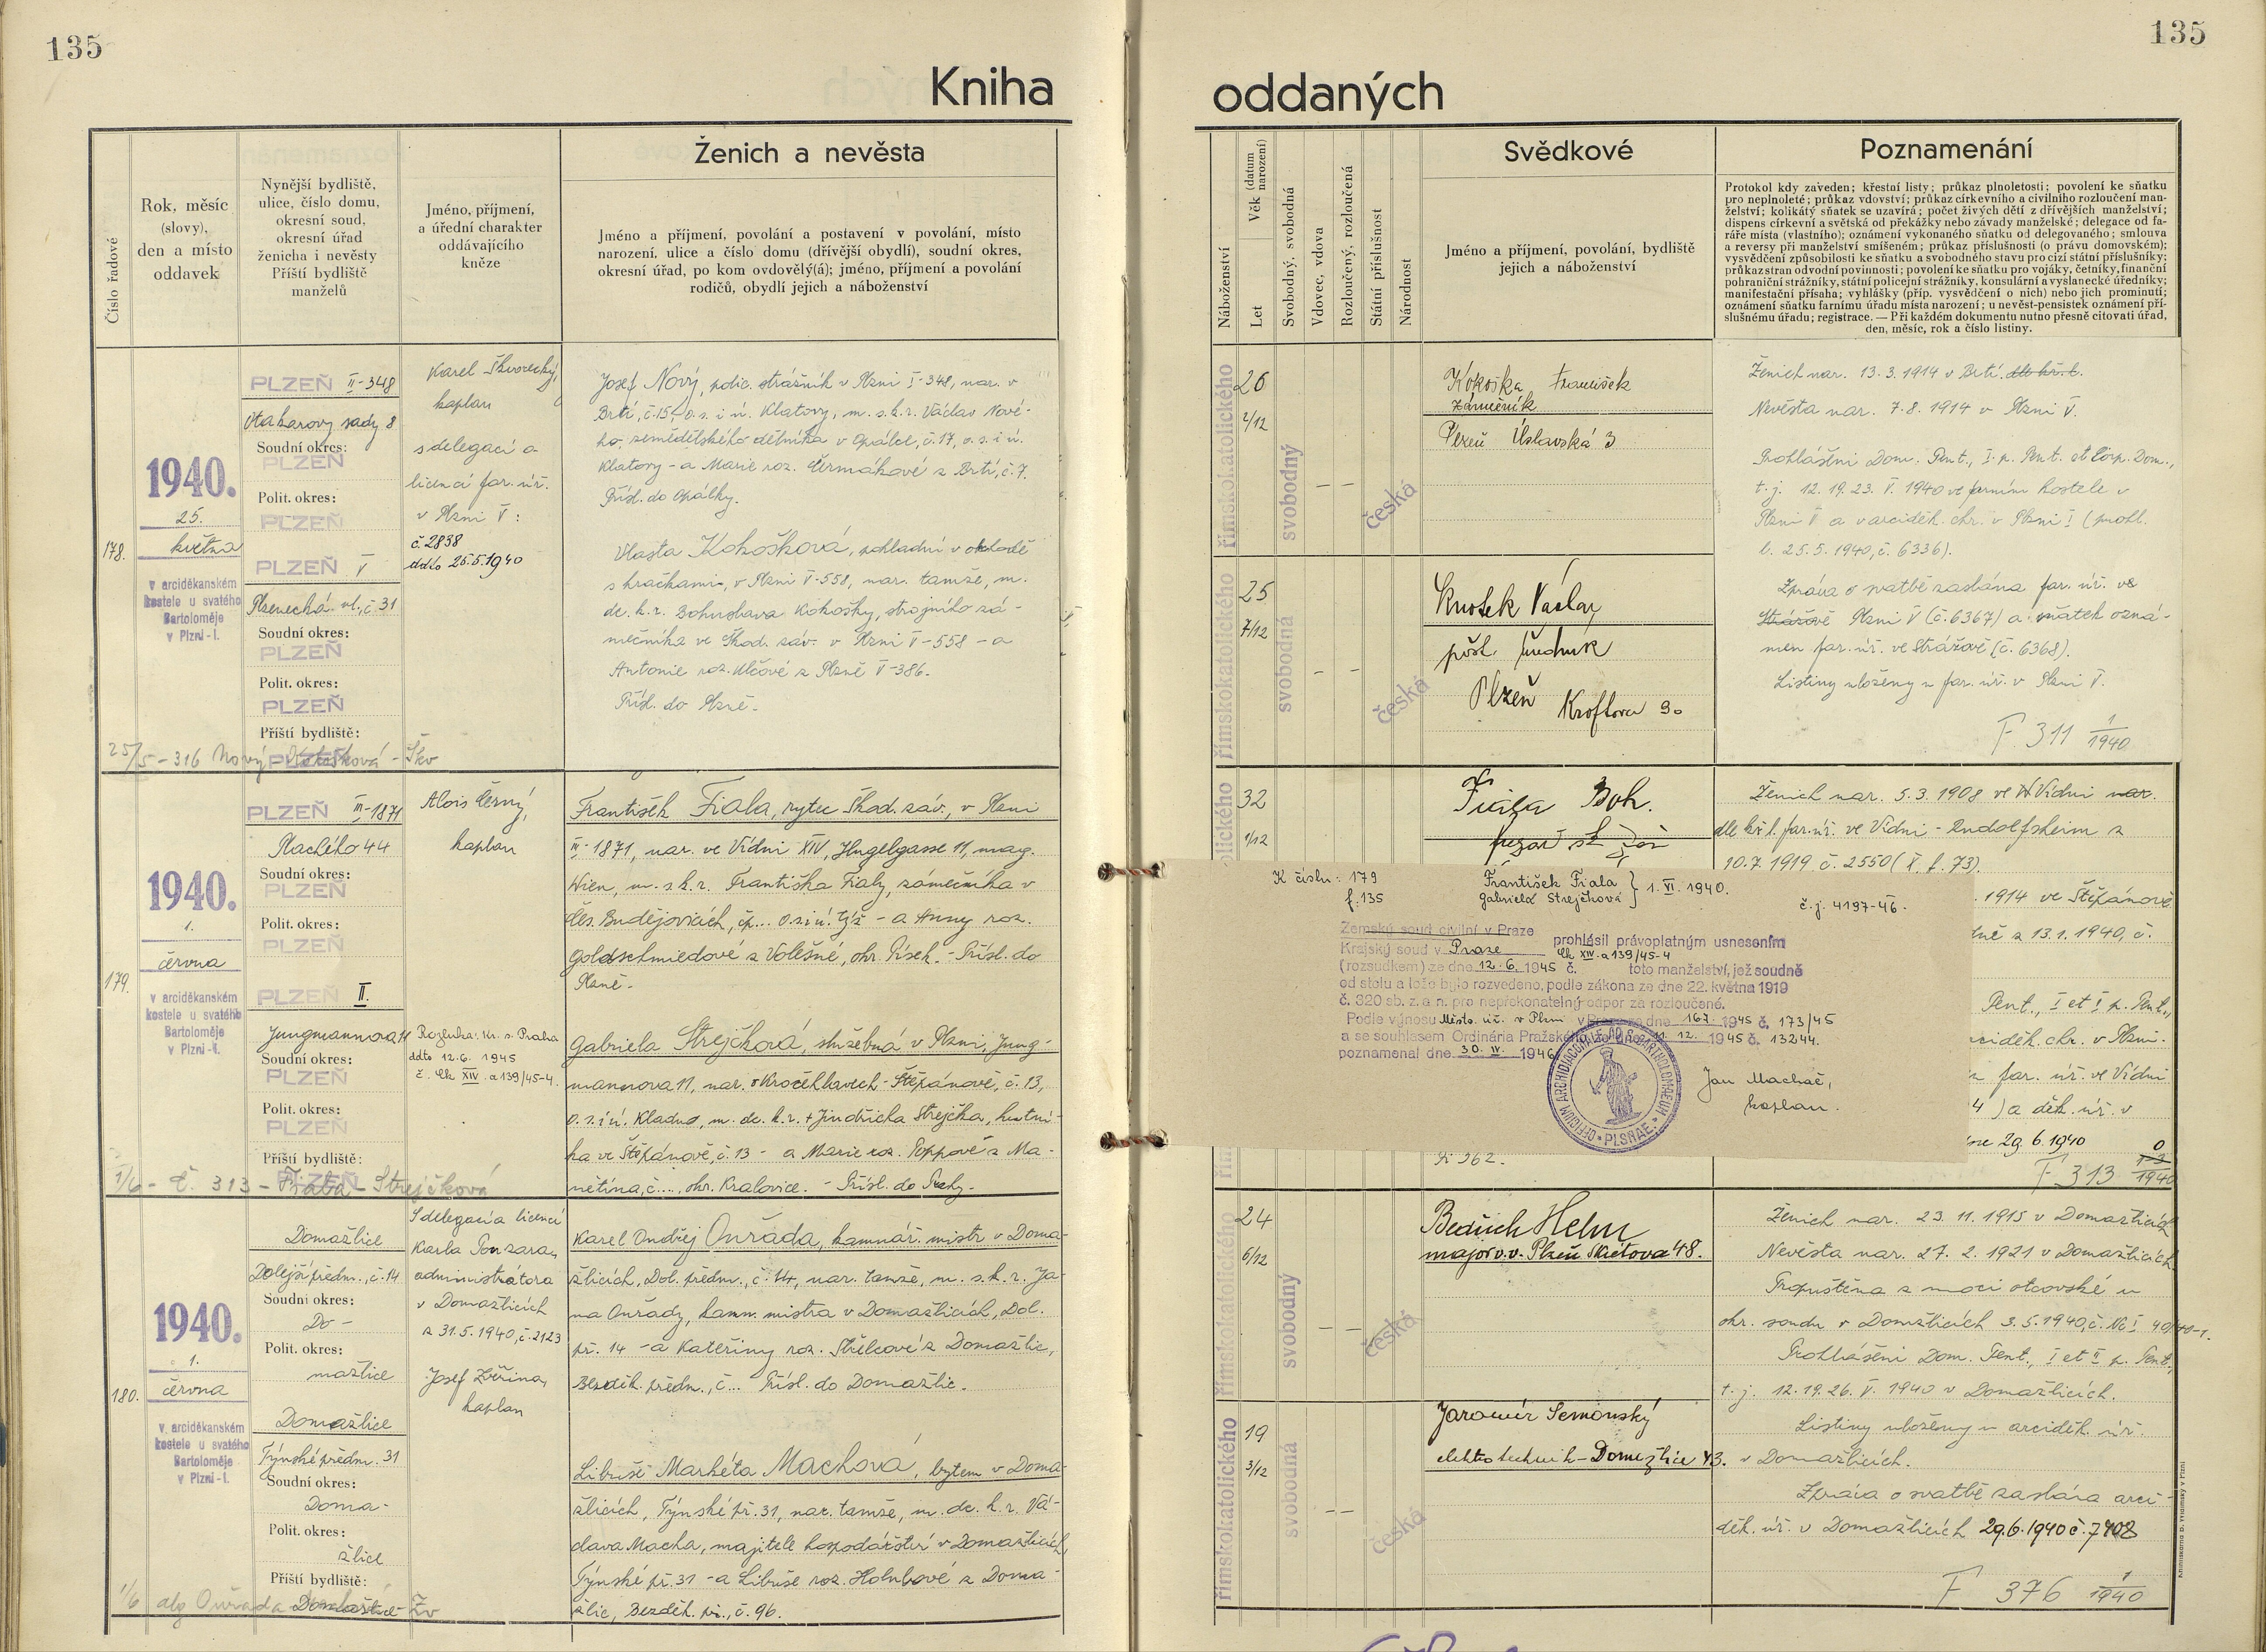 135
135
Kniha
oddaných
Číslo řadové
Rok, měsíc
(slovy),
den a místo
oddavek
Nynější bydliště,
ulice, číslo domu,
okresní soud,
okresní úřad
ženicha i nevěsty
Příští bydliště
manželů
Jméno, příjmení,
a úřední charakter
oddávajícího
kněze
Ženich a nevěsta
Jméno a příjmení, povolání a postavení v povolání, místo
narození, ulice a číslo domu (dřívější obydlí), soudní okres,
okresní úřad, po kom ovdovělý(á); jméno, příjmení a povolání
rodičů, obydlí jejich a náboženství
Náboženství
Let
Věk (datum narození)
Svobodný, svobodná
Vdovec, vdova
Rozloučený, rozloučená
Státní příslušnost
Národnost
Svědkové
Jméno a příjmení, povolání, bydliště
jejich a náboženství
Poznamenání
Protokol kdy zaveden; křestní listy; průkaz plnoletosti; povolení ke sňatku
pro neplnoleté; průkaz vdovství; průkaz církevního a civilního rozloučení man-
želství; kolikátý sňatek se uzavírá; počet živých dětí z dřívějších manželství;
dispens církevní a světská od překážky nebo závady manželské; delegace od fa-
ráře místa (vlastního); oznámení vykonaného sňatku od delegovaného; smlouva
a reversy při manželství smíšeném; průkaz příslušnosti (o právu domovském);
vysvědčení způsobilosti ke sňatku a svobodného stavu pro cizí státní příslušníky;
průkaz stran odvodní povinnosti; povolení ke sňatku pro vojáky, četníky, finanční
pohraniční strážníky, státní policejní strážníky, konsulární a vyslanecké úředníky;
manifestační přísaha; vyhlášky (příp. vysvědčení o nich) nebo jich prominutí;
oznámení sňatku farnímu úřadu místa narození; u nevěst-pensistek oznámení pří-
slušnému úřadu; registrace. — Při každém dokumentu nutno přesně citovati úřad,
den, měsíc, rok a číslo listiny.
178.
1940.
25.
května
v arciděkanském
kostele u svatého
Bartoloměje
v Plzni-I.
PLZEŇ II-348
Otakarovy sady 8
Soudní okres:
PLZEŇ
Polit. okres:
PLZEŇ
PLZEŇ V
Plzenecká ul., č. 31
Soudní okres:
PLZEŇ
Polit. okres:
PLZEŇ
Příští bydliště:
PLZEŇ
25/5 - 316 Nový Kokošková - Škv
Karel Škvorecký,
kaplan
s delegací a
licencí far. úř.
v Plzni V:
č. 2838
ddto 25.5.1940
Josef Nový, polic. strážník v Plzni I-348, nar. v
Brtí, č. 15, o.s. i ú. Klatovy, m. s. k. r. Václav Nové-
ho, zemědělského dělníka v Opálce, č. 17, o. s. i ú.
Klatovy - a Marie roz. Čermákové z Brtí, č. 7.
Přísl. do Opálky.
Vlasta Kokošková, pokladní v obchodě
s hračkami, v Plzni V-558, nar. tamže, m.
dc. k. r. Bohuslava Kokošky, strojního zá-
mečníka ve Škod. záv. v Plzni V-558 - a
Antonie roz. Vlčové z Plzně V-386.
Přísl. do Plzně.
římskokatolického
26
2/12
svobodný
— —
česká
Kokoška František
zámečník
Plzeň Úslavská 3
římskokatolického
25
7/12
svobodná
- -
česká
Knotek Václav
pošt. úředník
Plzeň Kroftova 30
Ženich nar. 13.3.1914 v Brtí. dle kř. l.
Nevěsta nar. 7.8.1914 v Plzni V.
Prohlášeni Dom. Pent., I. p. Pent. et Corp. Dom.,
t. j. 12. 19. 23. V. 1940 ve farním kostele v
Plzni V a v arciděk. chr. v Plzni I (prohl.
l. 25.5.1940, č. 6336).
Zpráva o svatbě zaslána far. úř. ve
Strážově Plzni V (č. 6367) a sňatek ozná-
men far. úř. ve Strážově (č. 6368).
Listiny uloženy u far. úř. v Plzni V.
F 311 1/1940
179.
1940.
1.
června
v arciděkanském
kostele u svatého
Bartoloměje
v Plzni-I.
PLZEŇ III-1871
Plachého 44
Soudní okres:
PLZEŇ
Polit. okres:
PLZEŇ
PLZEŇ II.
Jungmannova 11
Soudní okres:
PLZEŇ
Polit. okres:
PLZEŇ
Příští bydliště:
PLZEŇ
1/6 - č. 313 - Fiala - Strejčková
Alois Černý,
kaplan
Rozluka: Kr. s. Praha
ddto 12.6. 1945
č. Ck XIV. a 139/45-4.
František Fiala, rytec Škod. záv., v Plzni
III-1871, nar. ve Vídni XIV, Hugelgasse 11, mag.
Wien, m. s k. r. Františka Fialy, zámečníka v
Čes. Budějovicích, čp... o. s. i ú. tjž - a Anny roz.
Goldschmiedové z Volešné, okr. Písek. - Přísl. do
Plzně.
Gabriela Strejčková, služebná v Plzni, Jung-
mannova 11, nar. v Kročehlavech - Štěpánově, č. 13,
o. s. i ú. Kladno, m. dc. k. r. + Jindřicha Strejčka, hutní-
ka ve Štěpánově, č. 13 - a Marie roz. Poppové z Ma-
nětína, č..., okr. Kralovice. - Přísl. do Prahy.
32
1/12
Fiala Boh.
K číslu: 179
f. 135
František Fiala } 1. VI. 1940.
Gabriela Strejčková
č. j. 4197-46.
Zemský soud civilní v Praze
Krajský soud v Praze prohlásil právoplatným usnesením
Ck XIV. a 139/45-4
(rozsudkem) ze dne 12. 6. 1945 č. toto manželství, jež soudně
od stolu a lože bylo rozvedeno, podle zákona ze dne 22. května 1919
č. 320 sb. z. a n. pro nepřekonatelný odpor za rozloučené.
Podle výnosu Místo. úř. v Plzni v Praze ze dne 16.7. 1945 č. 173/45
a se souhlasem Ordinária Pražského ze dne 11. 12. 1945 č. 13244.
poznamenal dne 30. IV. 1946
Jan Machač,
kaplan.
OFFICIUM ARCHIDIACONALE AD S. BARTHOLOMAEUM PLSNAE
Ženich nar. 5.3.1908 ve Vídni nar.
dle kř. l. far. úř. ve Vídni - Rudolfsheim z
10.7.1919 č. 2550 (X. f. 73).
1914 ve Štěpánově
dně z 13.1.1940, č.
Pent., I et I p. Pent.,
arciděk. chr. v Plzni.
far. úř. ve Vídni
4) a děk. úř. v
29.6.1940
F 313 1940
180.
1940.
1.
června
v arciděkanském
kostele u svatého
Bartoloměje
v Plzni-I.
Domažlice
Dolejší předm., č. 14
Soudní okres:
Do-
Polit. okres:
mažlice
Domažlice
Týnské předm. 31
Soudní okres:
Doma-
Polit. okres:
žlice
Příští bydliště:
Domažlice
S delegací a licencí
Karla Pouzara,
administrátora
v Domažlicích
z 31.5.1940, č. 2123
Josef Zvěřina,
kaplan
Karel Ondřej Ouřada, kamnář. mistr v Doma-
žlicích, Dol. předm., č. 14, nar. tamže, m. s. k. r. Ja-
na Ouřady, kamn. mistra v Domažlicích, Dol.
př. 14 - a Kateřiny roz. Střelcové z Domažlic,
Bezděk. předm., č... Přísl. do Domažlic.
Libuše Markéta Machová, bytem v Doma-
žlicích, Týnské př. 31, nar. tamže, m. dc. k. r. Vá-
clava Macha, majitele hospodářství v Domažlicích,
Týnské př. 31 - a Libuše roz. Holubové z Doma-
žlic, Bezděk. př., č. 96.
římskokatolického
24
6/12
svobodný
— —
česká
Bedřich Helm
major v. v. Plzeň Skrétova 48.
římskokatolického
19
3/12
svobodná
— —
česká
Jaromír Semonský
elektrotechnik - Domažlice 43.
Ženich nar. 23.11.1915 v Domažlicích
Nevěsta nar. 27.2.1921 v Domažlicích.
Propuštěna z moci otcovské u
okr. soudu v Domažlicích 3.5.1940, č. Nc I 40/40-1.
Prohlášeni Dom. Pent., I et II p. Pent.,
t. j. 12. 19. 26. V. 1940 v Domažlicích.
Listiny uloženy u arciděk. úř.
v Domažlicích.
Zpráva o svatbě zaslána arci-
děk. úř. v Domažlicích 29.6.1940 č. 7408
F 376 1/1940